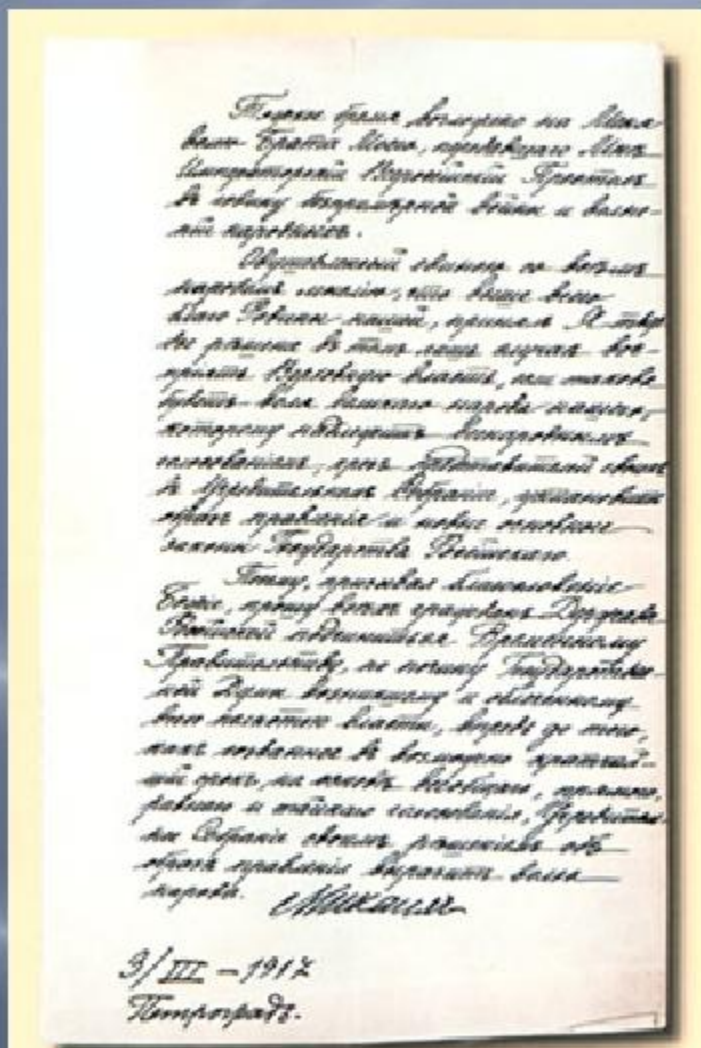 Тяжкое бремя возложено на Меня
волею Брата Моего, передавшаго Мнѣ
Императорскій Всероссійскій Престолъ
въ годину безпримѣрной войны и волне-
ній народныхъ.
Одушевленный единою со всѣмъ
народомъ мыслію, что выше всего
благо Родины нашей, принялъ Я твер
дое рѣшеніе въ томъ лишь случаѣ вос-
пріять Верховную власть, если такова
будетъ воля великаго народа нашего,
которому надлежитъ всенароднымъ
голосованіемъ, чрезъ представителей своихъ
въ Учредительномъ Собраніи, установить
образъ правленія и новые основные
законы Государства Россійскаго.
Посему, призывая благословеніе
Божіе, прошу всѣхъ гражданъ Державы
Россійской подчиниться Временному
Правительству, по почину Государствен-
ной Думы возникшему и облеченному
всею полнотою власти, впредь до того,
какъ созванное въ возможно кратчай-
шій срокъ, на основѣ всеобщаго, прямого,
равнаго и тайнаго голосованія, Учредитель-
ное Собраніе своимъ рѣшеніемъ объ
образѣ правленія выразитъ волю
народа.
Михаилъ
3/III – 1917
Петроградъ.